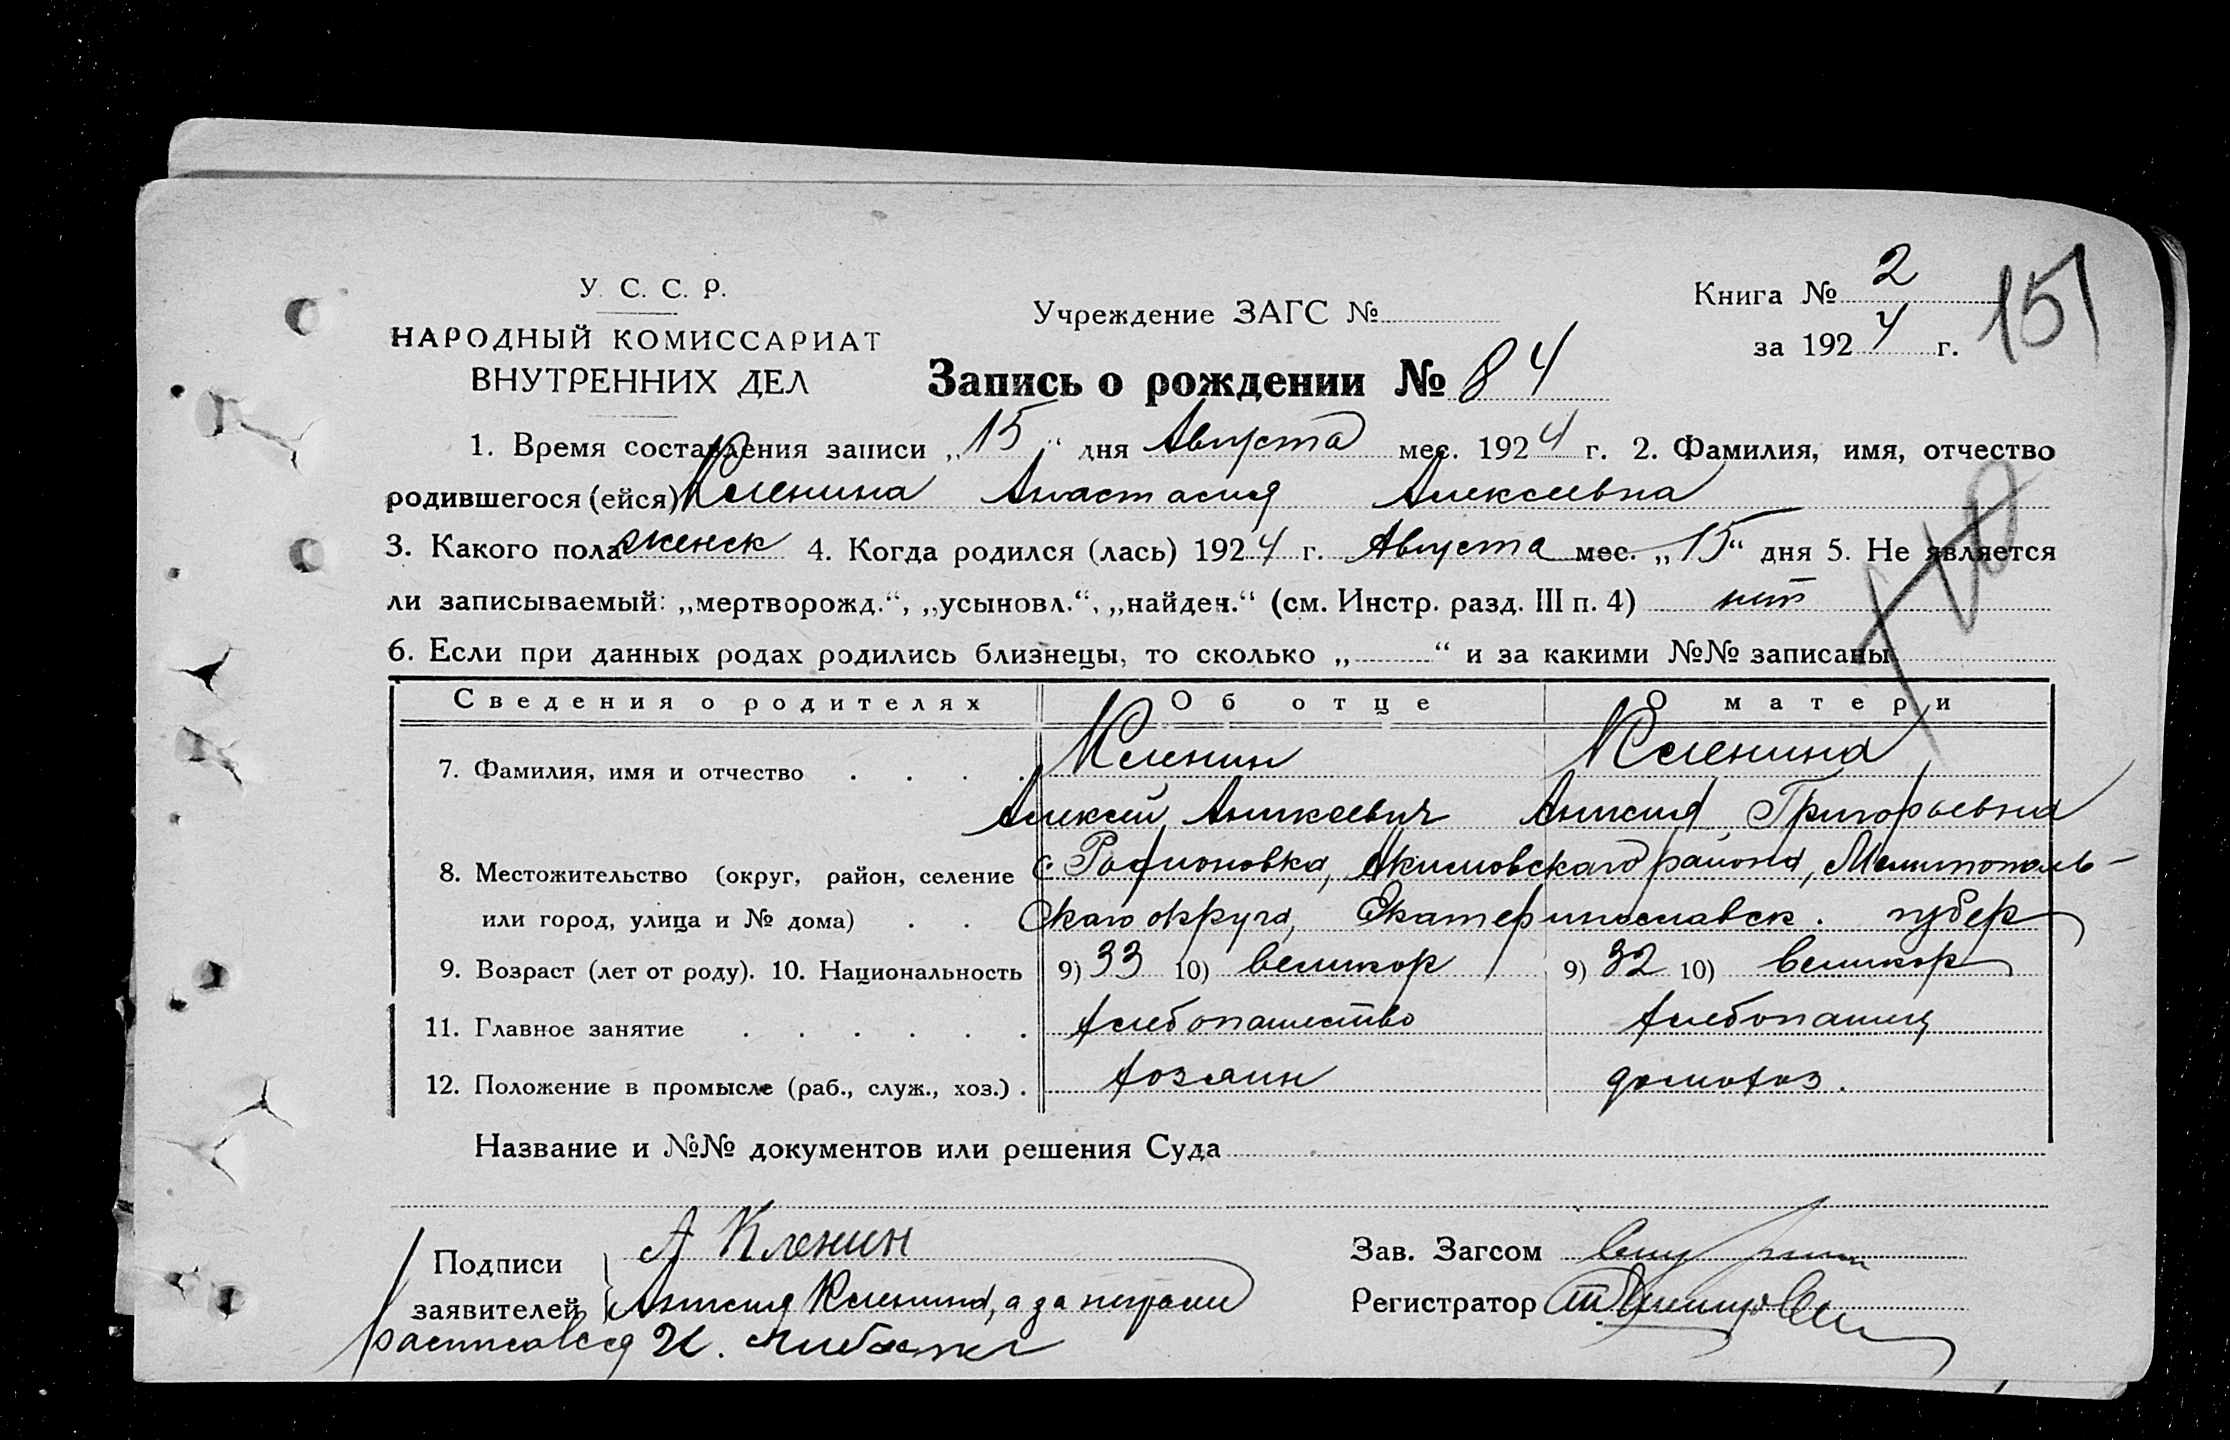 У. С. С. Р.
НАРОДНЫЙ КОМИССАРИАТ
ВНУТРЕННИХ ДЕЛ
Учреждение ЗАГС №
Книга № 2
за 1924 г.
151
Запись о рождении № 84
1. Время составления записи „15“ дня Августа мес. 1924 г. 2. Фамилия, имя, отчество
родившегося (ейся) Кленина Анастасия Алексеевна
3. Какого пола женск 4. Когда родился (лась) 1924 г. Августа мес. „15“ дня 5. Не является
ли записываемый: „мертворожд.“, „усыновл.“, „найден.“ (см. Инстр. разд. III п. 4) нет
6. Если при данных родах родились близнецы, то сколько „ “ и за какими №№ записаны
Сведения о родителях Об отце О матери
7. Фамилия, имя и отчество Кленин Кленина
Алексей Аникеевич Григорьевна
8. Местожительство (округ, район, селение с. Родионовка, Акимовского района, Мелитополь-
или город, улица и № дома) ского округа, Екатеринославск. губер
9. Возраст (лет от роду). 10. Национальность 9) 33 10) великор 9) 32 10) великор
11. Главное занятие хлебопашество хлебопашец
12. Положение в промысле (раб., служ., хоз.) хозяин домохоз.
Название и №№ документов или решения Суда
Подписи А Кленин
заявителей Кленина, а за неграм
расписався И.
Зав. Загсом
Регистратор